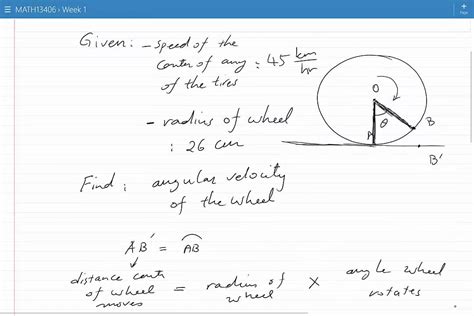 MATH13406 › Week 1
Given: - speed of the
center of any : 45 km/hr
of the tires
- radius of wheel
: 26 cm
O
θ
A
B
B'
Find : angular velocity
of the wheel
AB' = AB
distance cente
of wheel = radius of wheel × angle wheel
moves
rotates